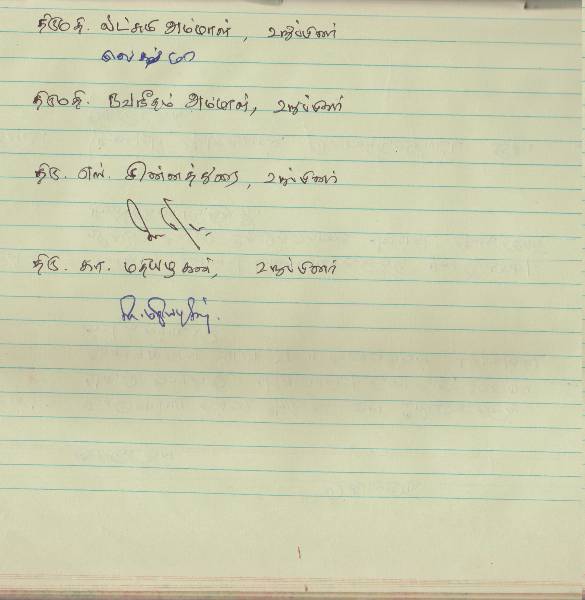 திருமதி. லட்சுமி அம்மாள், உறுப்பினர்
திருமதி. நவநீதம் அம்மாள், உறுப்பினர்
திரு. எஸ். சின்னத்துரை, உறுப்பினர்
திரு. கா. மதியழகன், உறுப்பினர்